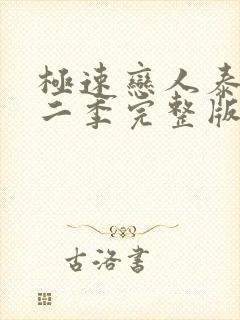 極速戀人泰
二季完整版
古洛書